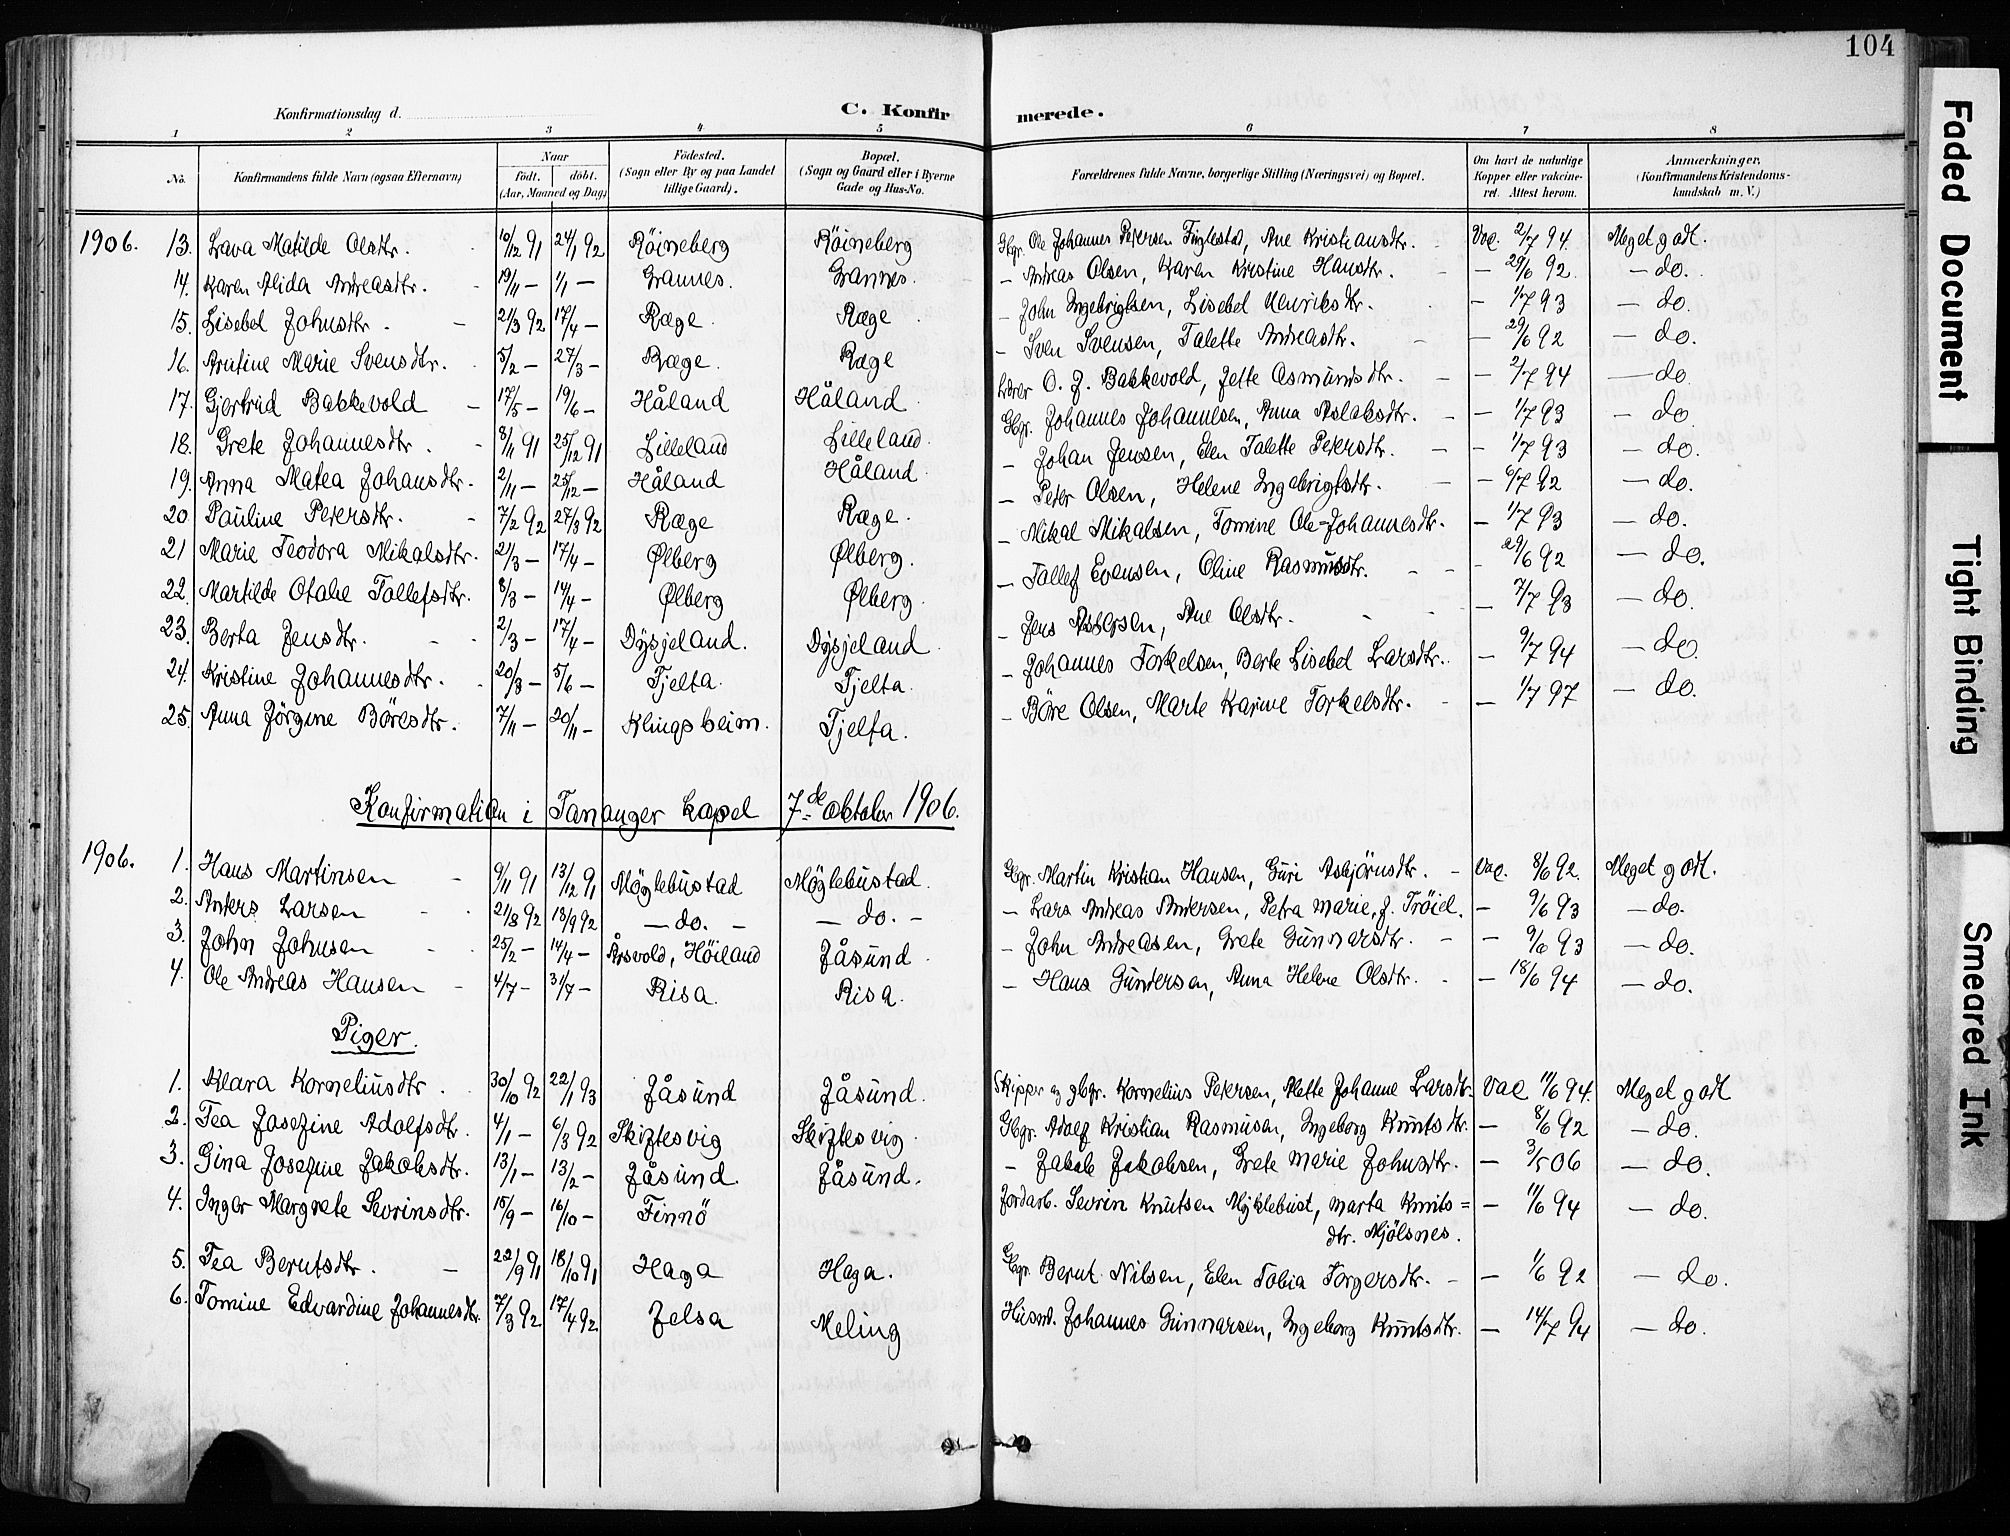 104
Konfirmationsdag d.
C. Konfirmerede.
1 2 3 4 5 6 7 8
No. Konfirmandens fulde Navn (ogsaa Efternavn) Naar født. døbt. (Aar, Maaned og Dag) Födested. (Sogn eller By og paa Landet tillige Gaard). Bopæl. (Sogn og Gaard eller i Byerne Gade og Hus-No. Forældrenes fulde Navne, borgerlige Stilling (Næringsvei) og Bopæl. Om havt de naturlige Kopper eller vakcineret. Attest herom. Anmærkninger. (Konfirmandens Kristendomskundskab m. V.)
1906. 13. Lava Matilde Olsdtr. 10/12 91 24/1 92 Röineberg Röineberg Gbgr. Ole Johannes Petersen, Ane Kristiansdtr. Vac. 2/7 94. Meget godt.
14. Karen Alida Andreasdtr. 19/11 — 1/1 — Grannes. Grannes. — Andreas Olsen, Karen Kristine Hansdtr. — 29/6 92. — do.
15. Lisebel Johnsdtr. 21/3 92 17/4 — Ræge. Ræge — John Ingebrigtsen, Lisebel Henriksdtr. — 1/7 93 — do.
16. Marie Svensdtr. 5/2 — 27/3 — Ræge. Ræge — Sven Svensen, Talette Andreasdtr. — 29/6 92 — do.
17. Gjertrud Bakkevold — 17/5 — 19/6 — Håland Håland Lærer O. J. Bakkevold, Jette Asmundsdtr. — 2/7 94 — do.
18. Grete Johannesdtr. 8/11 91 25/12 91 Lilleland Lilleland. Gbgr. Johannes Johannesen, Anna Aslaksdtr. — 1/7 93 — do.
19. Anna Matea Johansdtr. 2/11 — 25/12 — Håland Håland — Johan Jensen, Elen Talette Petersdtr. — 1/7 93 — do.
20 Pauline Petersdtr. 7/2 92 27/3 92 Ræge Ræge. — Peter Olsen, Helene Ingebrigtsdtr. — 6/7 92 — do.
21 Marie Teodora Mikalsdtr. 21/3 — 17/4 — Ølberg Ølberg. — Mikal Mikalsen, Tomine Ole-Johannesdtr. — 1/7 93 — do.
22. Martilde Otalie Tollefsdtr. 8/3 — 14/4 — Ølberg Ølberg. — Tollef Evensen, Oline Rasmusdtr. — 29/6 92 — do.
23. Berta Jensdtr. 2/3 — 17/4 — Dysjeland. Dysjeland. — Jens Asbjörsen, Ane Olsdtr. — 7/7 93 — do.
24. Kristine Johannesdtr. 20/3 — 5/6 — Tjelta. Tjelta. — Johannes Torkelsen, Berte Lisebel Larsdtr. — 9/7 94 — do.
25. Anna Jörgine Böresdtr. 7/11 — 20/11 — Klingsheim. Tjelta. — Böre Olsen, Marte Karine Torkelsdtr. — 1/7 97 — do.
Konfirmation i Tananger kapel 7de oktober 1906.
1906. 1. Hans Martinsen 9/11 91 13/12 91 Möglebustad Möglebustad. Gbgr. Martin Kristian Hansen, Guri Asbjörnsdtr. — Vac. 8/6 92. Meget godt.
2. Anders Larsen 21/8 92 18/9 92 — do. — — do. — — Lars Andreas Andersen, Petra Marie, f. Tröiel. — 9/6 93 — do.
3. John Johnsen 25/2 — 14/4 — Årsvold, Höiland Jåsund. — John Andreasen, Grete Gunnarsdtr. — 9/6 93 — do.
4. Ole Andreas Hansen 4/7 — 31/7 — Risa. Risa. — Hans Gundersen, Anna Helene Olsdtr. — 18/6 94 — do.
Piger.
1. Klara Korneliusdtr. 30/10 92 22/1 93 Jåsund Jåsund. Skipper og gbgr. Kornelius Petersen, Alette Johanne Larsdtr. Vac 11/6 94. Meget godt
2. Tea Josefine Adolfsdtr. 4/1 — 6/3 92 Skiftesvig Skiftesvig. Gbgr. Adolf Kristian Rasmusen, Ingeborg Knutsdtr. — 8/6 92 — do.
3. Gina Josefine Jakobsdtr. 13/1 — 13/2 — Jåsund. Jåsund. — Jakob Jakobsen, Grete Marie Johnsdtr. — 3/5 06 — do.
4. Inger Margrete Sevrinsdtr. 15/9 — 16/10 — Finnö Jordarb. Sevrin Knutsen Myklebust, Marta Knuts= — 11/6 94 — do.
dtr. Mjölsnes.
5. Tea Berntsdtr. — 22/9 91 18/10 91 Haga Haga. Gbgr. Bernt Nilsen, Elen Tobia Torgersdtr. — — 1/6 92 — do.
6. Tomine Edvardine Johannesdtr. 7/3 92 17/4 92 Jelsa Meling Husmd. Johannes Gunnarsen, Ingeborg Knutsdtr. — 14/7 94 — do.
Faded Document
Tight Binding
Smeared Ink